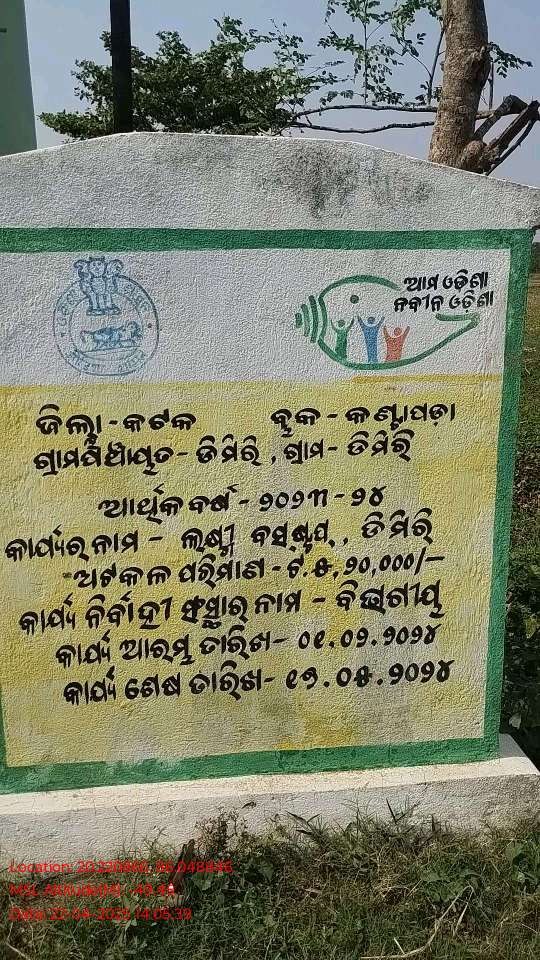 ଆମ ଓଡ଼ିଶା
ନବୀନ ଓଡ଼ିଶା
ଜିଲ୍ଲା - କଟକ ବ୍ଲକ - କଣ୍ଟାପଡ଼ା
ଗ୍ରାମପଞ୍ଚାୟତ - ଡିମିରି , ଗ୍ରାମ - ଡିମିରି
ଆର୍ଥିକ ବର୍ଷ - ୨୦୨୩ - ୨୪
କାର୍ଯ୍ୟର ନାମ - ଲକ୍ଷ୍ମୀ ବସଷ୍ଟପ୍ , ଡିମିରି
ଅଟକଳ ପରିମାଣ - ଟ.୫,୨୦,୦୦୦/-
କାର୍ଯ୍ୟ ନିର୍ବାହୀ ସଂସ୍ଥାର ନାମ - ବିଭାଗୀୟ
କାର୍ଯ୍ୟ ଆରମ୍ଭ ତାରିଖ - ୦୧.୦୨.୨୦୨୪
କାର୍ଯ୍ୟ ଶେଷ ତାରିଖ - ୧୭.୦୫.୨୦୨୪
Location: 20.220860, 86.048846
MSL Altitude(M): -49.49
Date: 22-04-2025 14:06:39